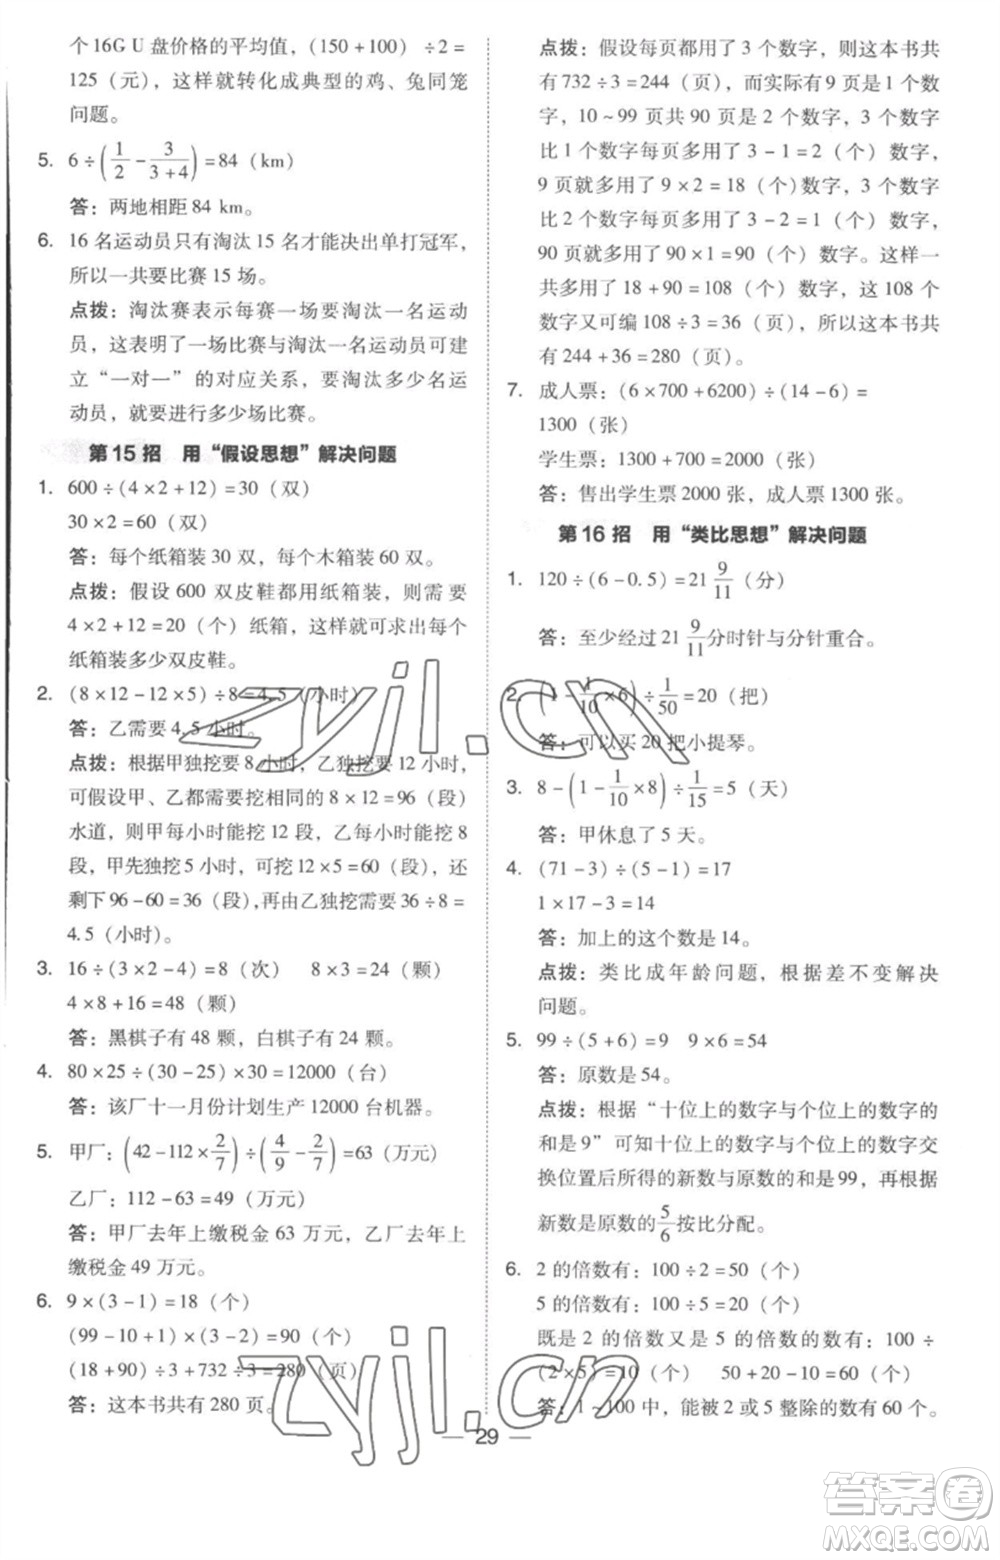 个 16G U 盘价格的平均值，(150 + 100) ÷ 2 =
125（元），这样就转化成典型的鸡、兔同笼
问题。
5. 6 ÷ (1/2 - 3/(3+4)) = 84（km）
答：两地相距 84 km。
6. 16 名运动员只有淘汰 15 名才能决出单打冠军，
所以一共要比赛 15 场。
点拨：淘汰赛表示每赛一场要淘汰一名运动
员，这表明了一场比赛与淘汰一名运动员可建
立“一对一”的对应关系，要淘汰多少名运
动员，就要进行多少场比赛。
第 15 招 用“假设思想”解决问题
1. 600 ÷ (4 × 2 + 12) = 30（双）
30 × 2 = 60（双）
答：每个纸箱装 30 双，每个木箱装 60 双。
点拨：假设 600 双皮鞋都用纸箱装，则需要
4 × 2 + 12 = 20（个）纸箱，这样就可求出每个
纸箱装多少双皮鞋。
2. (8 × 12 - 12 × 5) ÷ 8 = 4.5（小时）
答：乙需要 4.5 小时。
点拨：根据甲独挖要 8 小时，乙独挖要 12 小时，
可假设甲、乙都需要挖相同的 8 × 12 = 96（段）
水道，则甲每小时能挖 12 段，乙每小时能挖 8
段，甲先独挖 5 小时，可挖 12 × 5 = 60（段），还
剩下 96 - 60 = 36（段），再由乙独挖 36 ÷ 8 =
4.5（小时）。
3. 16 ÷ (3 × 2 - 4) = 8（次） 8 × 3 = 24（颗）
4 × 8 + 16 = 48（颗）
答：黑棋子有 48 颗，白棋子有 24 颗。
4. 80 × 25 ÷ (30 - 25) × 30 = 12000（台）
答：该厂十一月份计划生产 12000 台机器。
5. 甲厂：(42 - 112 × 2/7) ÷ (4/9 - 2/7) = 63（万元）
乙厂：112 - 63 = 49（万元）
答：甲厂去年上缴税金 63 万元，乙厂去年上
缴税金 49 万元。
6. 9 × (3 - 1) = 18（个）
(99 - 10 + 1) × (3 - 2) = 90（个）
(18 + 90) ÷ 3 + 732 ÷ 3 = 280（页）
答：这本书共有 280 页。
点拨：假设每页都用了 3 个数字，则这本书共
有 732 ÷ 3 = 244（页），而实际有 9 页是 1 个数
字，10 ~ 99 页共 90 页是 2 个数字，3 个数字
比 1 个数字每页多用了 3 - 1 = 2（个）数字，
9 页就多用了 9 × 2 = 18（个）数字，3 个数字
比 2 个数字每页多用了 3 - 2 = 1（个）数字，
90 页就多用了 90 × 1 = 90（个）数字。这样一
共多用了 18 + 90 = 108（个）数字，这 108 个
数字又可编 108 ÷ 3 = 36（页），所以这本书共
有 244 + 36 = 280（页）。
7. 成人票：(6 × 700 + 6200) ÷ (14 - 6) =
1300（张）
学生票：1300 + 700 = 2000（张）
答：售出学生票 2000 张，成人票 1300 张。
第 16 招 用“类比思想”解决问题
1. 120 ÷ (6 - 0.5) = 21 9/11（分）
答：至少经过 21 9/11 分时针与分针重合。
2. (1 - 1/10 × 6) ÷ 1/50 = 20（把）
答：可以买 20 把小提琴。
3. 8 - (1 - 1/10 × 8) ÷ 1/15 = 5（天）
答：甲休息了 5 天。
4. (71 - 3) ÷ (5 - 1) = 17
1 × 17 - 3 = 14
答：加上的这个数是 14。
点拨：类比成年龄问题，根据差不变解决
问题。
5. 99 ÷ (5 + 6) = 9 9 × 6 = 54
答：原数是 54。
点拨：根据“十位上的数字与个位上的数字的
和是 9”可知十位上的数字与个位上的数字交
换位置后所得的新数与原数的和是 99，再根据
新数是原数的 5/6 按比分配。
6. 2 的倍数有：100 ÷ 2 = 50（个）
5 的倍数有：100 ÷ 5 = 20（个）
既是 2 的倍数又是 5 的倍数的数有：100 ÷
(2 × 5) = 10（个） 50 + 20 - 10 = 60（个）
答：1 ~ 100 中，能被 2 或 5 整除的数有 60 个。
29
zyjl.cn
zyjl.cn
答案圈
MXQE.COM